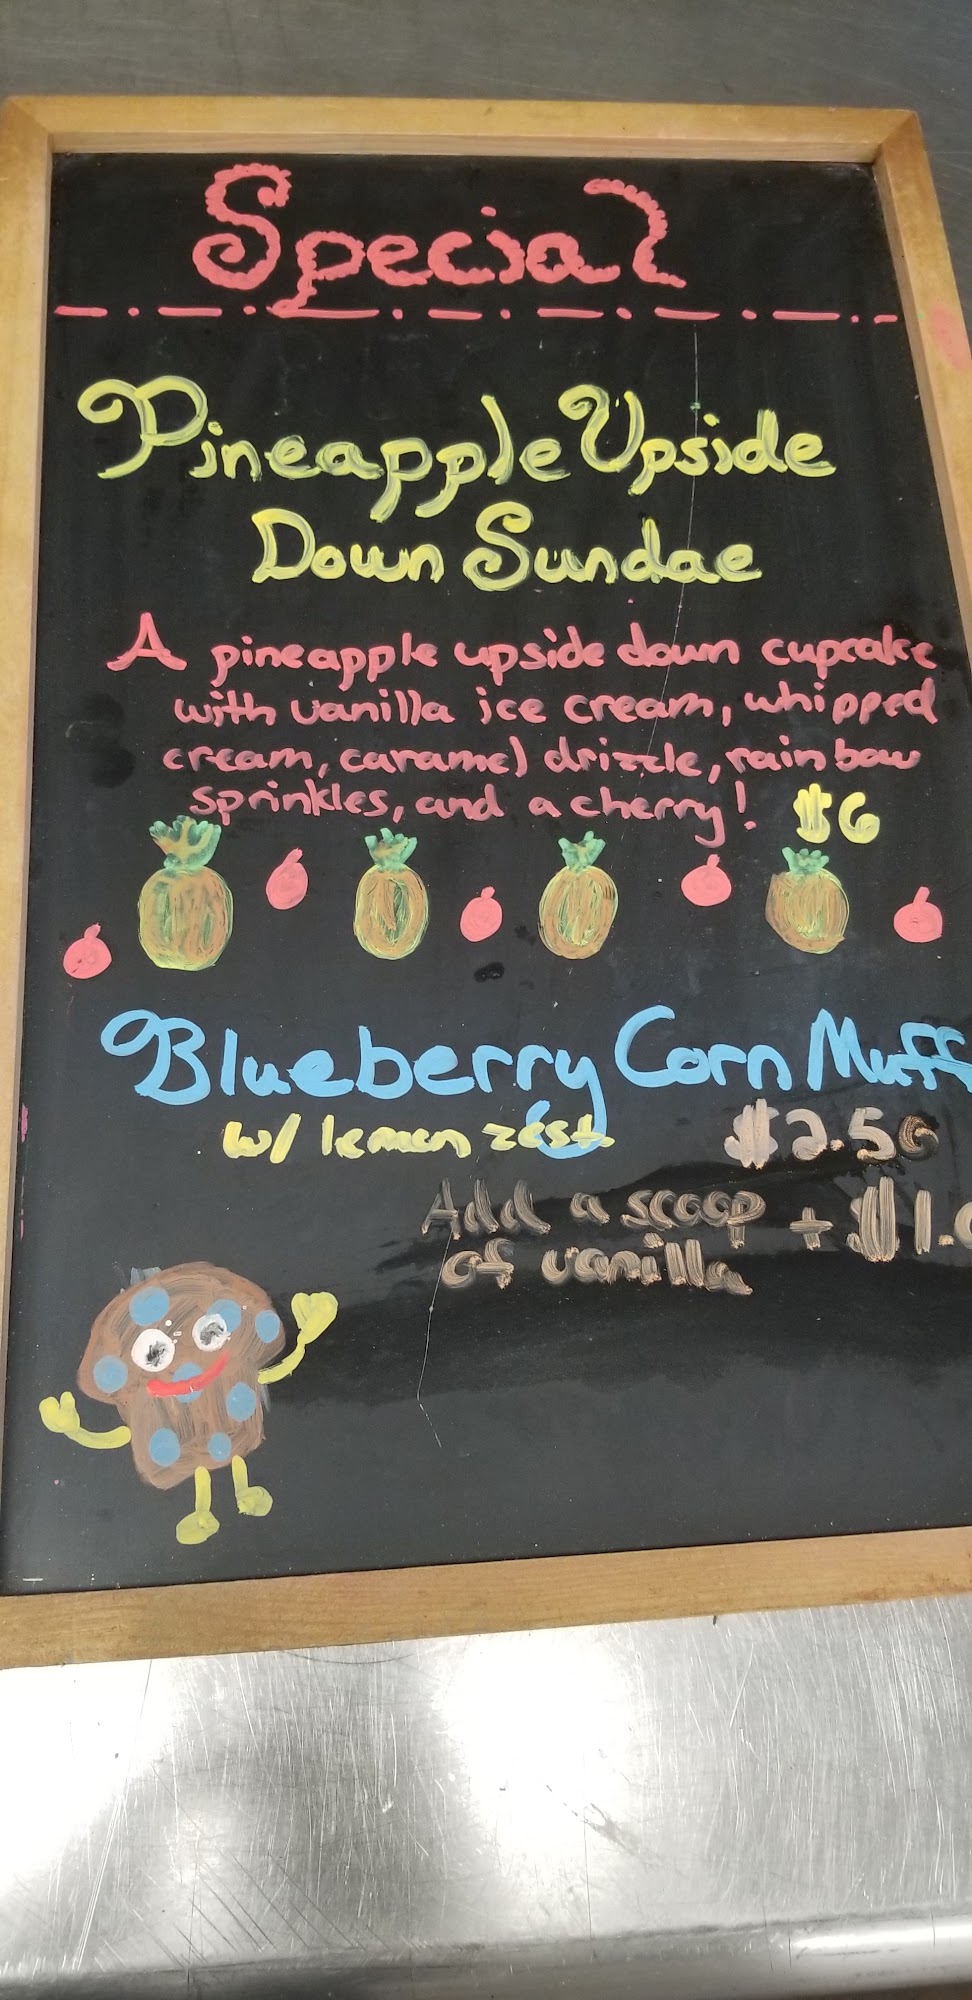 Special
Pineapple Upside
Down Sundae
A pineapple upside down cupcake
with vanilla ice cream, whipped
cream, caramel drizzle, rainbow
sprinkles, and a cherry! $6
Blueberry Corn Muff
w/ lemon zest. $2.50
Add a scoop + $1.
of vanilla